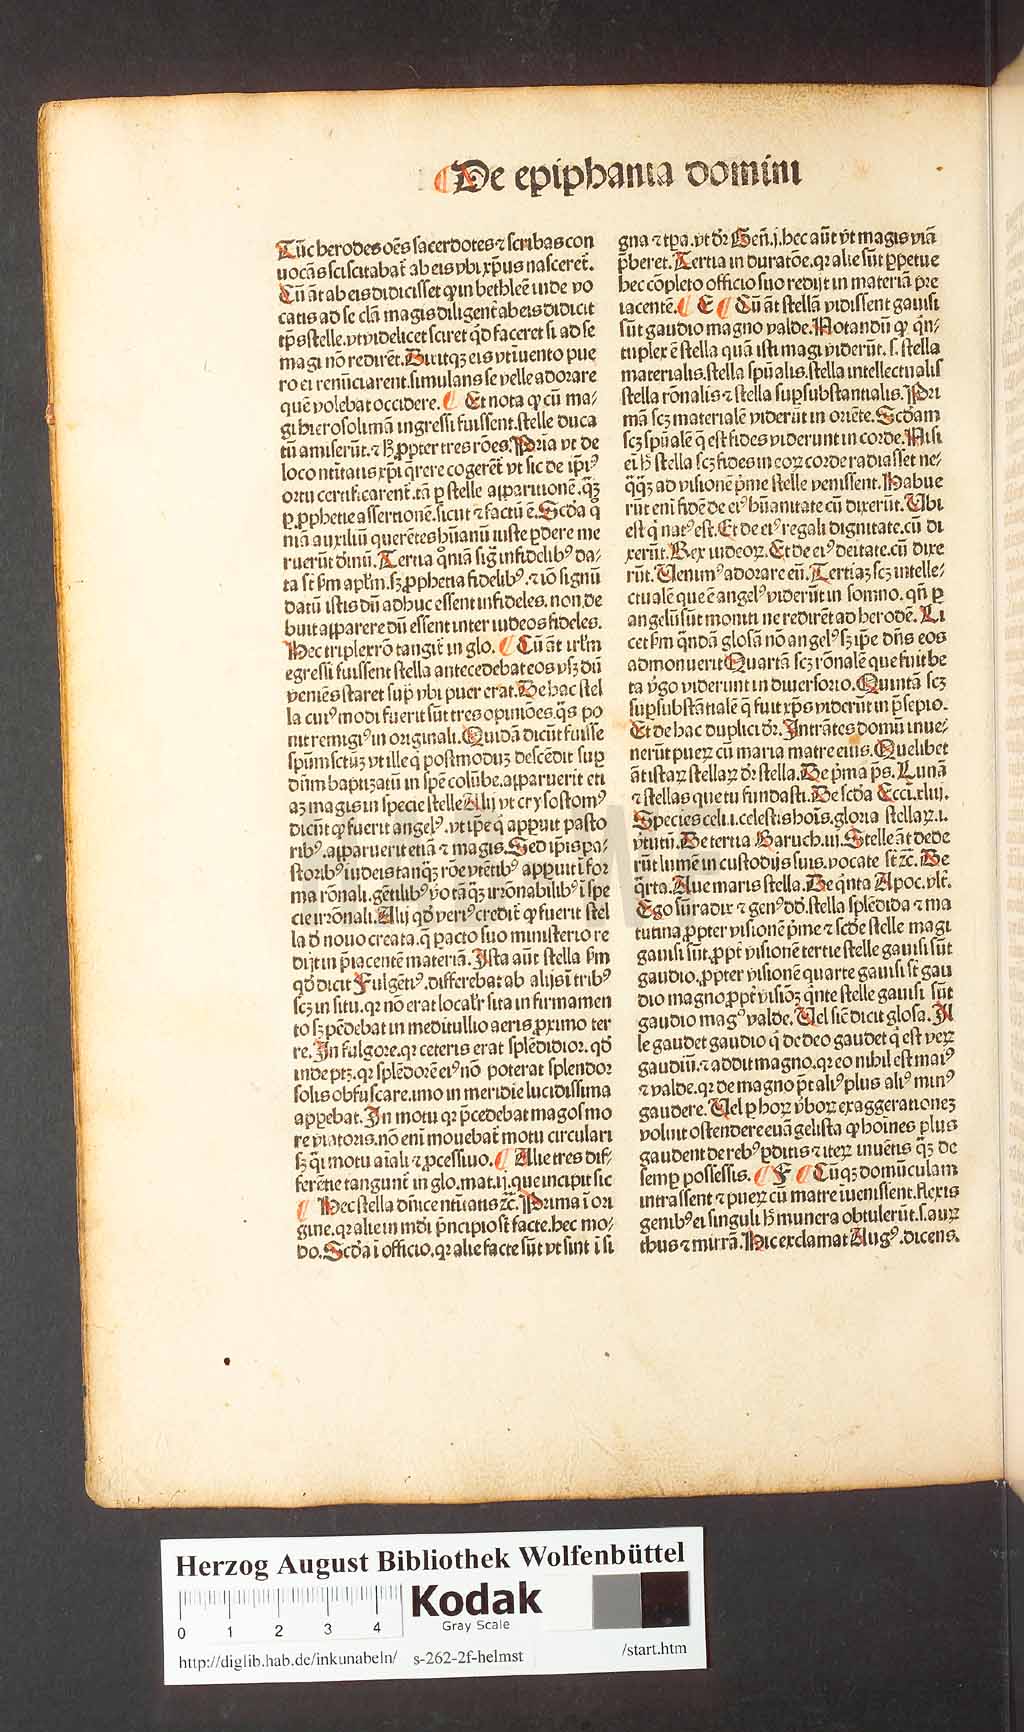 De epiphania domini
Tūc herodes oēs sacerdotes ⁊ scribas con
uocās sciscitabat̄ ab eis vbi xp̄us nasceret̄.
Cū āt ab eis didicisset ꝙ in bethleē inde vo
catis ad se clā magis diligent̄ ab eis didicit
tp̄s stelle. vt videlicet sciret qd̄ faceret si ad se
magi nō redirēt. Dixitqꝫ eis vt inuento pue
ro ei renūciarent. simulans se velle adorare
quē volebat occidere. Et nota ꝙ cū ma-
gi hierosolimā ingressi fuissent. stelle duca
tū amiserūt. ⁊ hꝰ ꝓpter tres rōes. Pria vt de
loco nt̄itatis xp̄i q̄rere cogerēt vt sic de ip̄iꝰ
ortu certificarent̄. tā ꝑ stelle apparitionē. q̄ꝫ
ꝑ ꝓphetie assertionē. sicut ⁊ factū ē. Scd̄a q̄
niā auxiliū querētes hūanū iuste ꝑdere me
ruerūt diuinū. Tertia qm̄ia siḡ infidelibꝰ da-
ta st̄ ẜm apl̄m. sꝫ ꝓphetia fidelibꝰ. ⁊ iō signū
datū istis dū adhuc essent infideles. non de
buit apparere dū essent inter iudeos fideles.
Hec triplex rō tangit̄ in glo. Cū āt irl̄m
egressi fuissent stella antecedebat eos vsꝫ dū
veniēs staret supͣ vbi puer erat. De hac stel
la cuiꝰmodi fuerit sūt tres opiniōes. q̄s po
nit remigiꝰ in originali. Quidā dicūt fuisse
spūm sctūꝫ vt ille q̄ postmoduꝫ descēdit sup
dn̄m baptizatū in spē colūbe. apparuerit eti
aꝫ magis in specie stelle Alij vt crysostomꝰ
dicūt ꝙ fuerit angelꝰ. vt ip̄e q̄ apparuit pasto
ribꝰ. apparuerit etiā ⁊ magis. Sed ip̄is pa-
storibꝰ iudeis tanqꝫ rōe vtētibꝰ apparuit ī for
ma rōnali. gētilibꝰ v̄o tāqꝫ irrōnabilibꝰ ī spe
cie irrōnali. Alij qd̄ veriꝰ credit̄ ꝙ fuerit stel
la d̄ nouo creata. q̄ ꝑacto suo ministerio re
dijt in p̄iacentē materiā. Ista aūt stella ẜm
qd̄ dicit Fulgētiꝰ. differebat ab alijs ī tribꝰ
scꝫ in situ. qꝛ nō erat local'r sita in firmamen
to sꝫ pēdebat in meditullio aeris ꝓximo ter
re. In fulgore. qꝛ ceteris erat splēdidior. qd̄
inde ptꝫ. qꝛ splēdorē eiꝰ nō poterat splendor
solis obfuscare. imo in meridie lucidissima
appebat. In motu qꝛ p̄cedebat magos mo
re viatoris. nō eni mouebat̄ motu circulari
sꝫ q̄si motu aīali ⁊ ꝓcessiuo. Alie tres dif-
ferētie tangunt̄ in glo. mat. ij. que incipit sic
Hec stella dn̄ice nt̄iuatis ⁊c̄. Prima ī ori
gine. qꝛ alie in mōi p̄ncipio st̄ facte. hec mo-
do. Scd̄a ī officio. qꝛ alie facte sūt vt sint ī si
gna ⁊ tp̄a. vt dr̄ Geñ. j. hec aūt vt magis viā
p̄beret. Tertia in duratōe. qꝛ alie sūt ꝑpetue
hec cōpleto officio suo redijt in materiā pre
iacentē. E Cū āt stellā vidissent gauisi
sūt gaudio magno valde. Notandū ꝙ q̄n-
tuplex ē stella quā isti magi viderūt. s. stella
materialis. stella spūalis. stella intellectualis
stella rōnalis ⁊ stella suꝑsubstantialis. Pri
mā scꝫ materialē viderūt in oriēte. Scd̄am
scꝫ spūalē q̄ est fides viderunt in corde. Nisi
ei hꝰ stella scꝫ fides in eoꝝ corde radiasset ne-
q̄qꝫ ad visionē p̄me stelle venissent. Habue
rūt eni fidē de eiꝰ hūanitate cū dixerūt. Ubi
est q̄ natꝰ est. Et de eiꝰ regali dignitate. cū di
xerūt. Rex iudeoꝝ. Et de eiꝰ deitate. cū dixe
rūt. Uenimꝰ adorare eū. Tertiaꝫ scꝫ intelle-
ctualē que ē angelꝰ viderūt in somno. qn̄ ꝑ
angelū sūt moniti ne redirēt ad herodē. Li
cet ẜm q̄ndā glosā nō angelꝰ sꝫ ip̄e dn̄s eos
admonuerit Quartā scꝫ rōnalē que fuit be
ta v̄go viderunt in diuersorio. Quintā scꝫ
suꝑsubstātialē q̄ fuit xp̄s viderūt in p̄sepio.
Et de hac duplici dr̄. Intrātes domū inue-
nerūt pueꝝ cū maria matre eius. Quelibet
āt istaꝝ stellaꝝ dr̄ stella. De p̄ma p̄s. Lunā
⁊ stellas que tu fundasti. De scd̄a Ecci. xliij.
Species celi .i. celestis hoīs. gloria stellaꝝ .i.
v̄tutū. De tertia Baruch. iij. Stelle āt dede
rūt lumē in custodijs suis. vocate st̄ ⁊c̄. De
q̄rta. Aue maris stella. De q̄nta Apoc. vlt̄.
Ego sū radix ⁊ genꝰ dd̄. stella splēdida ⁊ ma
tutina. ꝓpter visionē p̄me ⁊ scd̄e stelle magi
gauisi sūt. ꝓpt̄ visionē tertie stelle gauisi sūt
gaudio. ꝓpter visionē quarte gauisi st̄ gau
dio magno. ꝓpt̄ visiōꝫ q̄nte stelle gauisi sūt
gaudio magͦ valde. Uel sic̄ dicit glosa. Il
le gaudet gaudio q̄ de deo gaudet q̄ est veꝝ
gaudiū. ⁊ addit magno. qꝛ eo nihil est maiꝰ
⁊ valde. qꝛ de magno p̄t aliꝰ plus aliꝰ minꝰ
gaudere. Uel ꝑ hoꝝ v̄boꝝ exaggerationeꝫ
voluit ostendere euāgelista ꝙ hoīnes plus
gaudent de rebꝰ ꝑditis ⁊ iteꝝ inuētis q̄ꝫ de
semꝑ possessis. F Cūqꝫ domūculam
intrassent ⁊ pueꝝ cū matre īuenissent. flexis
genibꝰ ei singuli hꝰ munera obtulerūt. s. auꝝ
thus ⁊ mirrā. Hic exclamat Augꝰ. dicens.
Herzog August Bibliothek Wolfenbüttel
Kodak
Gray Scale
0 1 2 3 4
http://diglib.hab.de/inkunabeln/ s-262-2f-helmst /start.htm